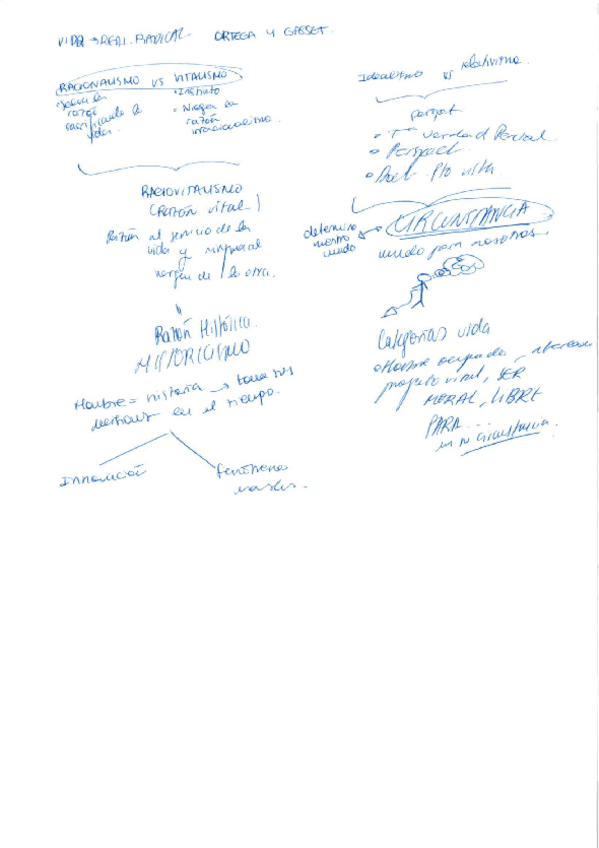 VIDA → REAL. RADICAL ORTEGA Y GASSET.
RACIONALISMO VS VITALISMO
razón
sacrificando la
vida.
• Instinto
• Niegan la
razón
irracionalismo.
RACIOVITALISMO
(Razón vital)
Razón al servicio de la
vida y
margen de la otra.
Razón Histórica.
HISTORICISMO
Hombre = historia → toma sus
en el tiempo.
Innovación
fenómeno
masas.
Idealismo vs relativismo
• Verdad Parcial
• Perspect.
• Pto vista
CIRCUNSTANCIA
determina
nuestro
mundo
mundo para nosotros
Categorías vida
proyecto vital, SER
MORAL, LIBRE
PARA...
en su circunstancia.